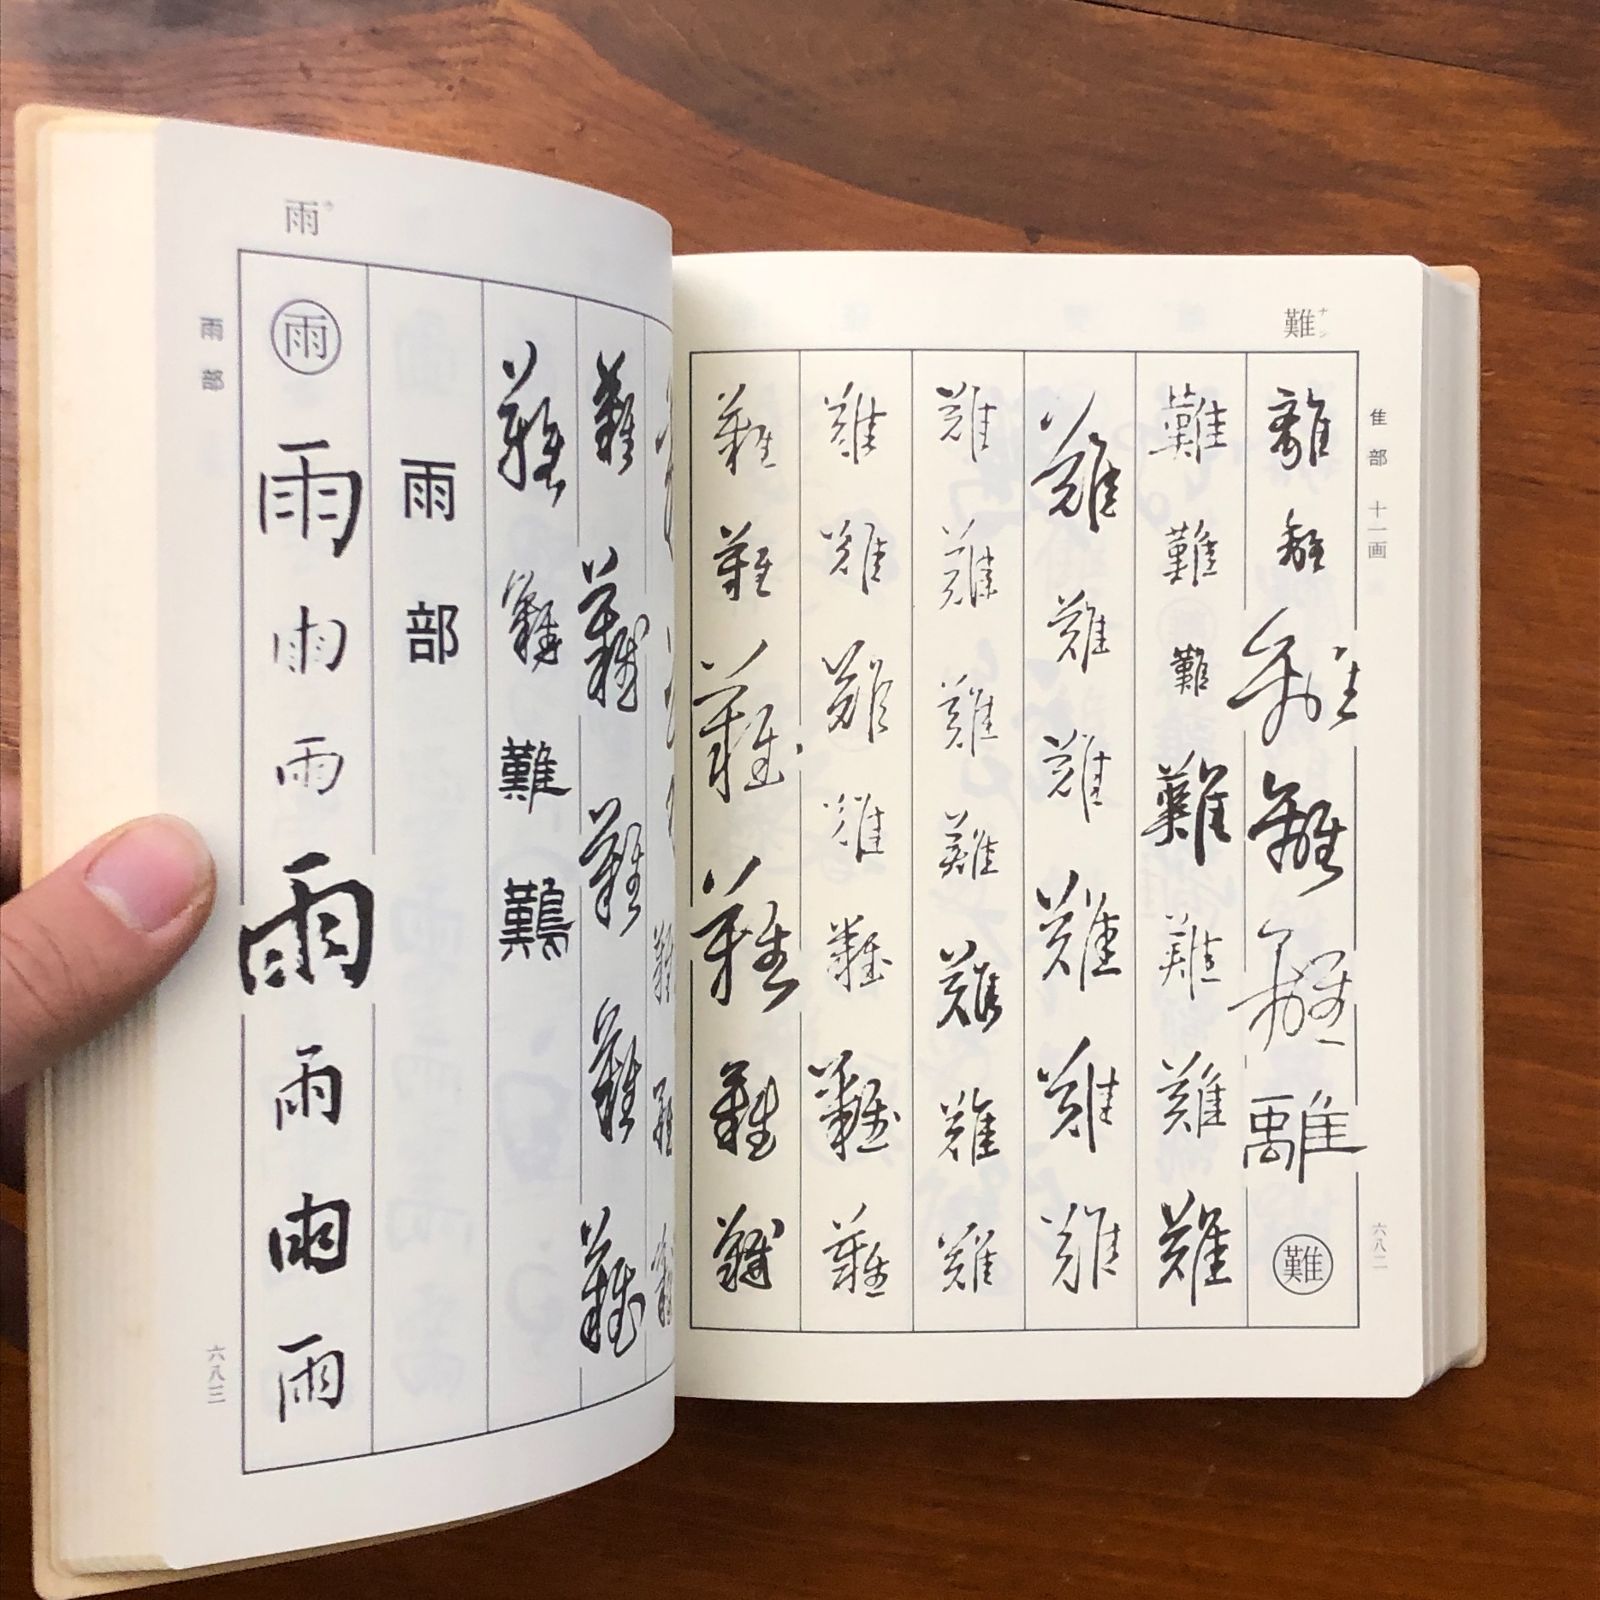 難 ナン
隹部 十一画
離離離離離離難
難難難難難難難
難難難難難難
難難難難難難難
難難難難難難難
難難難難難難
六八二
雨 ウ
難難難難難
難難難難
雨部
雨雨雨雨雨雨雨雨
雨部
六八三